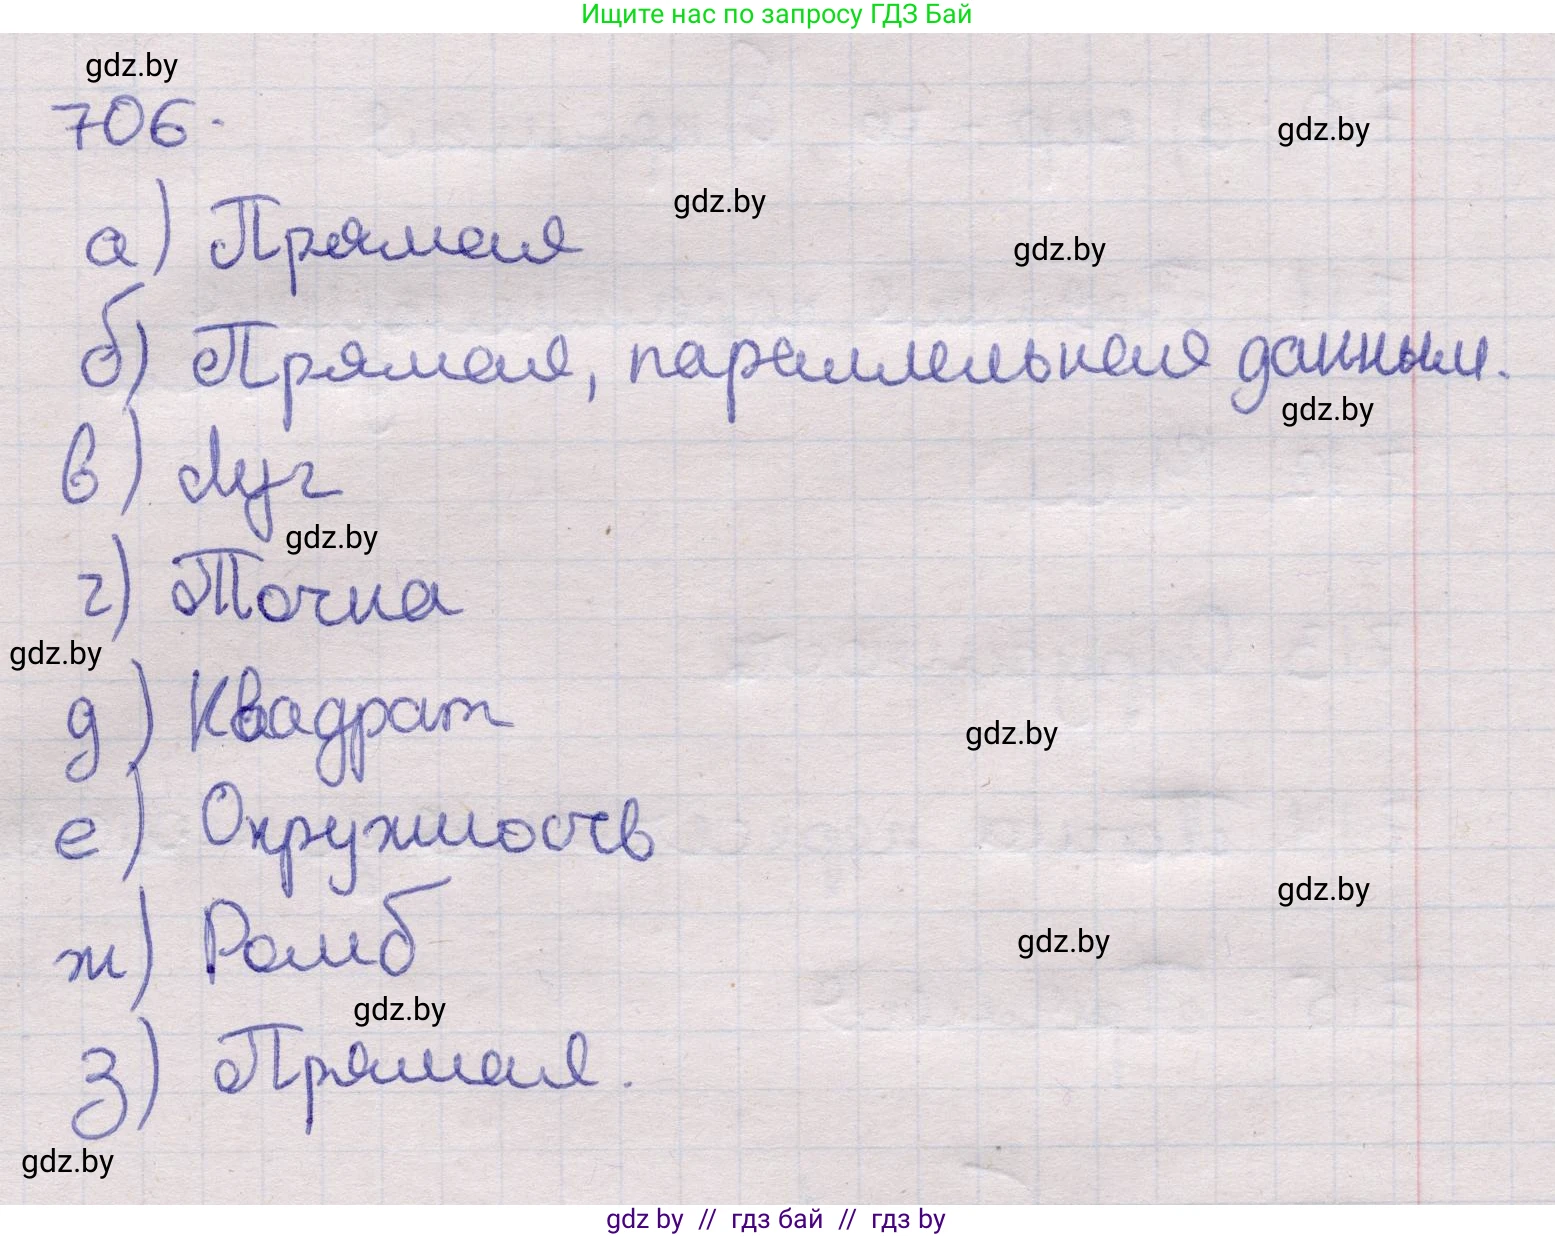 Ищите нас по запросу ГДЗ Бай
gdz.by
706.
gdz.by
gdz.by
а) Прямая
gdz.by
б) Прямая, параллельная данным.
gdz.by
в) Луч
gdz.by
г) Точка
gdz.by
д) Квадрат
gdz.by
е) Окружность
gdz.by
ж) Ромб
gdz.by
gdz.by
з) Прямая.
gdz.by
gdz by // гдз бай // гдз by